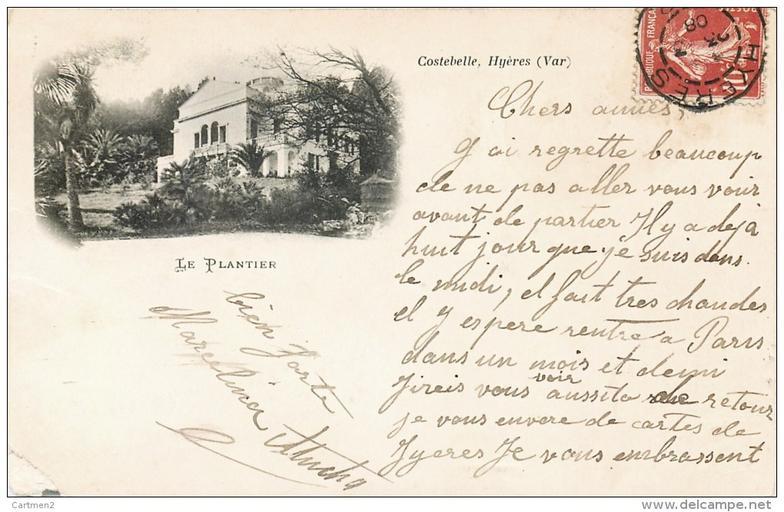 Costebelle, Hyères (Var)
REPUBLIQUE FRANÇAISE
POSTES
10
HYERES
08
Chers amies,
J'ai regrette beaucoup
de ne pas aller vous voir
avant de partier Il y a deja
huit jour que je suis dans
le midi, el fait tres chaudes
el y espere rentre a Paris
dans un mois et demi
Jireis vous voir aussito de retour
je vous envere de cartes de
Iyeres Je vous embrassent
LE PLANTIER
bien forte
Marcelina
Cartmen2
www.delcampe.net